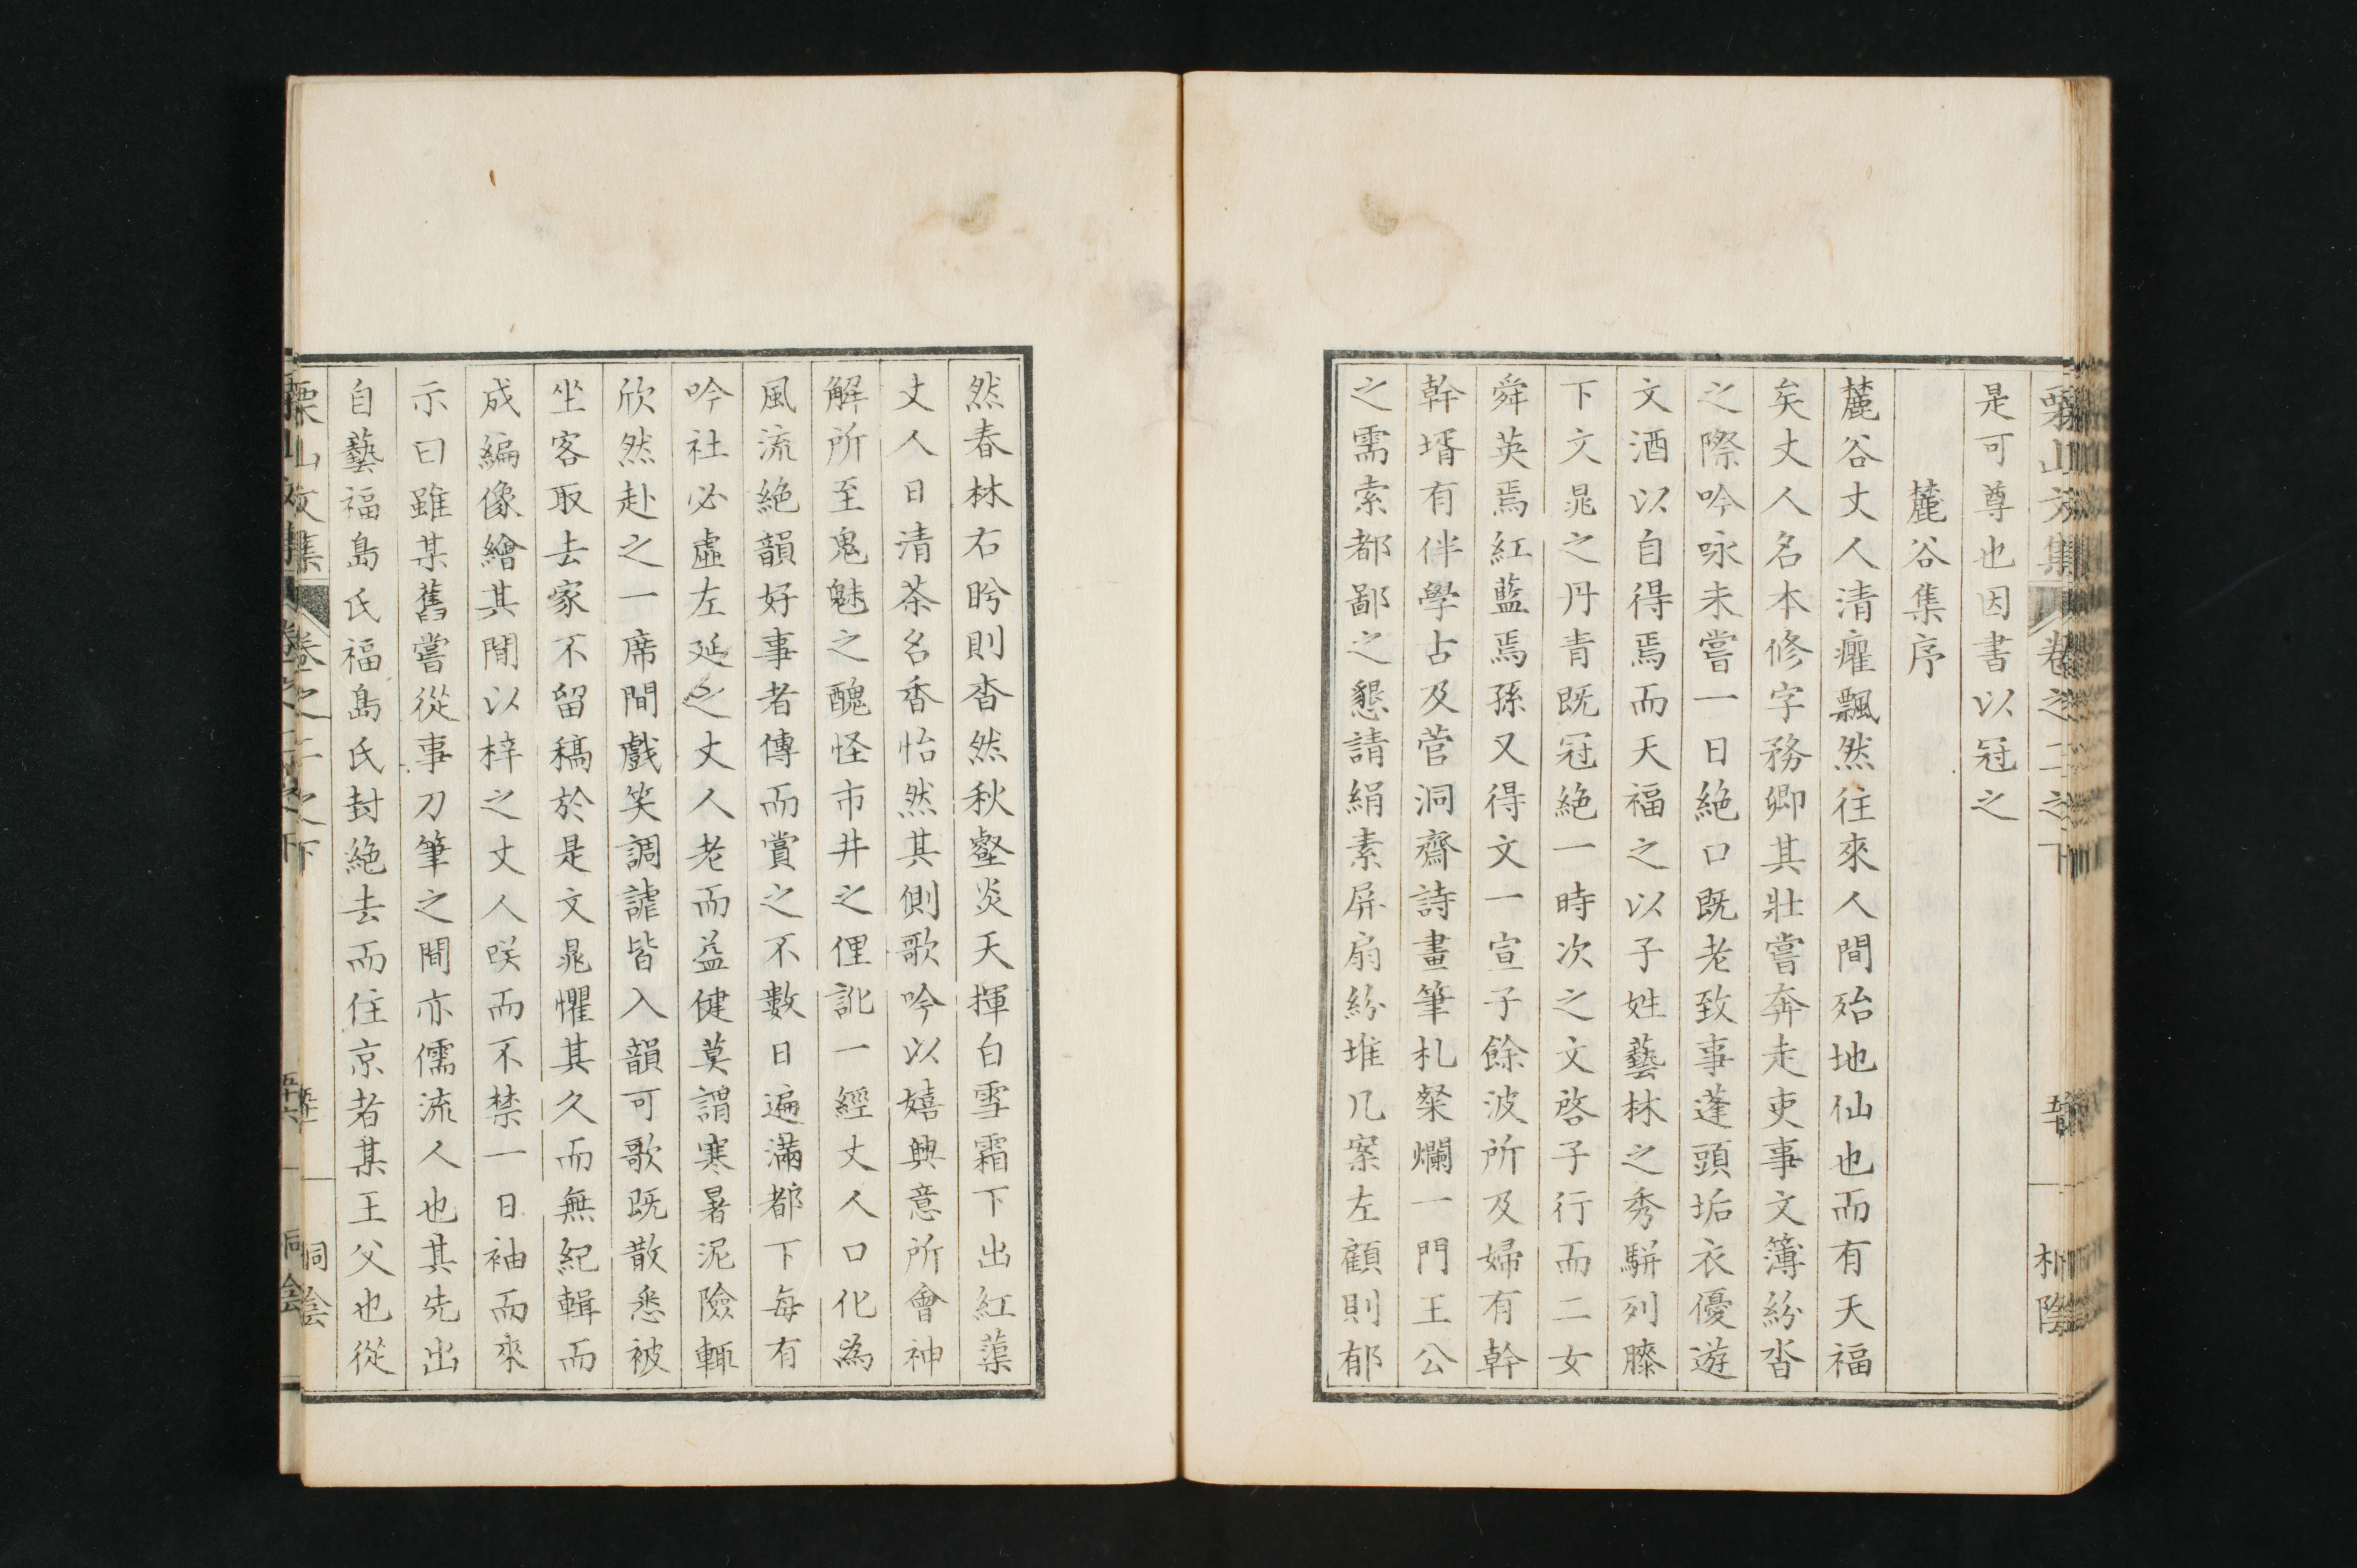 栗山文集 卷之二之下
是可尊也因書以冠之
麓谷集序
麓谷丈人清癯飄然往來人間殆地仙也而有天福
矣丈人名本修字務卿其壯嘗奔走吏事文簿紛沓
之際吟咏未嘗一日絕口既老致事蓬頭垢衣優遊
文酒以自得焉而天福之以子姓藝林之秀駢列膝
下文晁之丹青既冠絕一時次之文啓子行而二女
舜英焉紅藍焉孫又得文一宣子餘波所及婦有幹
幹壻有伴學占及菅洞齋詩畫筆札粲爛一門王公
之需索都鄙之懇請絹素屏扇紛堆几案左顧則郁
然春林右盻則杳然秋壑炎天揮白雪霜下出紅蕖
丈人日清茶名香怡然其側歌吟以嬉興意所會神
解所至鬼魅之醜怪市井之俚訛一經丈人口化為
風流絕韻好事者傳而賞之不數日遍滿都下每有
吟社必虛左延之丈人老而益健莫謂寒暑泥險輒
欣然赴之一席間戲笑調謔皆入韻可歌既散悉被
坐客取去家不留稿於是文晁懼其久而無紀輯而
成編像繪其間以梓之丈人咲而不禁一日袖而來
示曰雖某舊嘗從事刀筆之間亦儒流人也其先出
自藝福島氏福島氏封絕去而住京者某王父也從
栗山文集 卷之二之下
桐陰